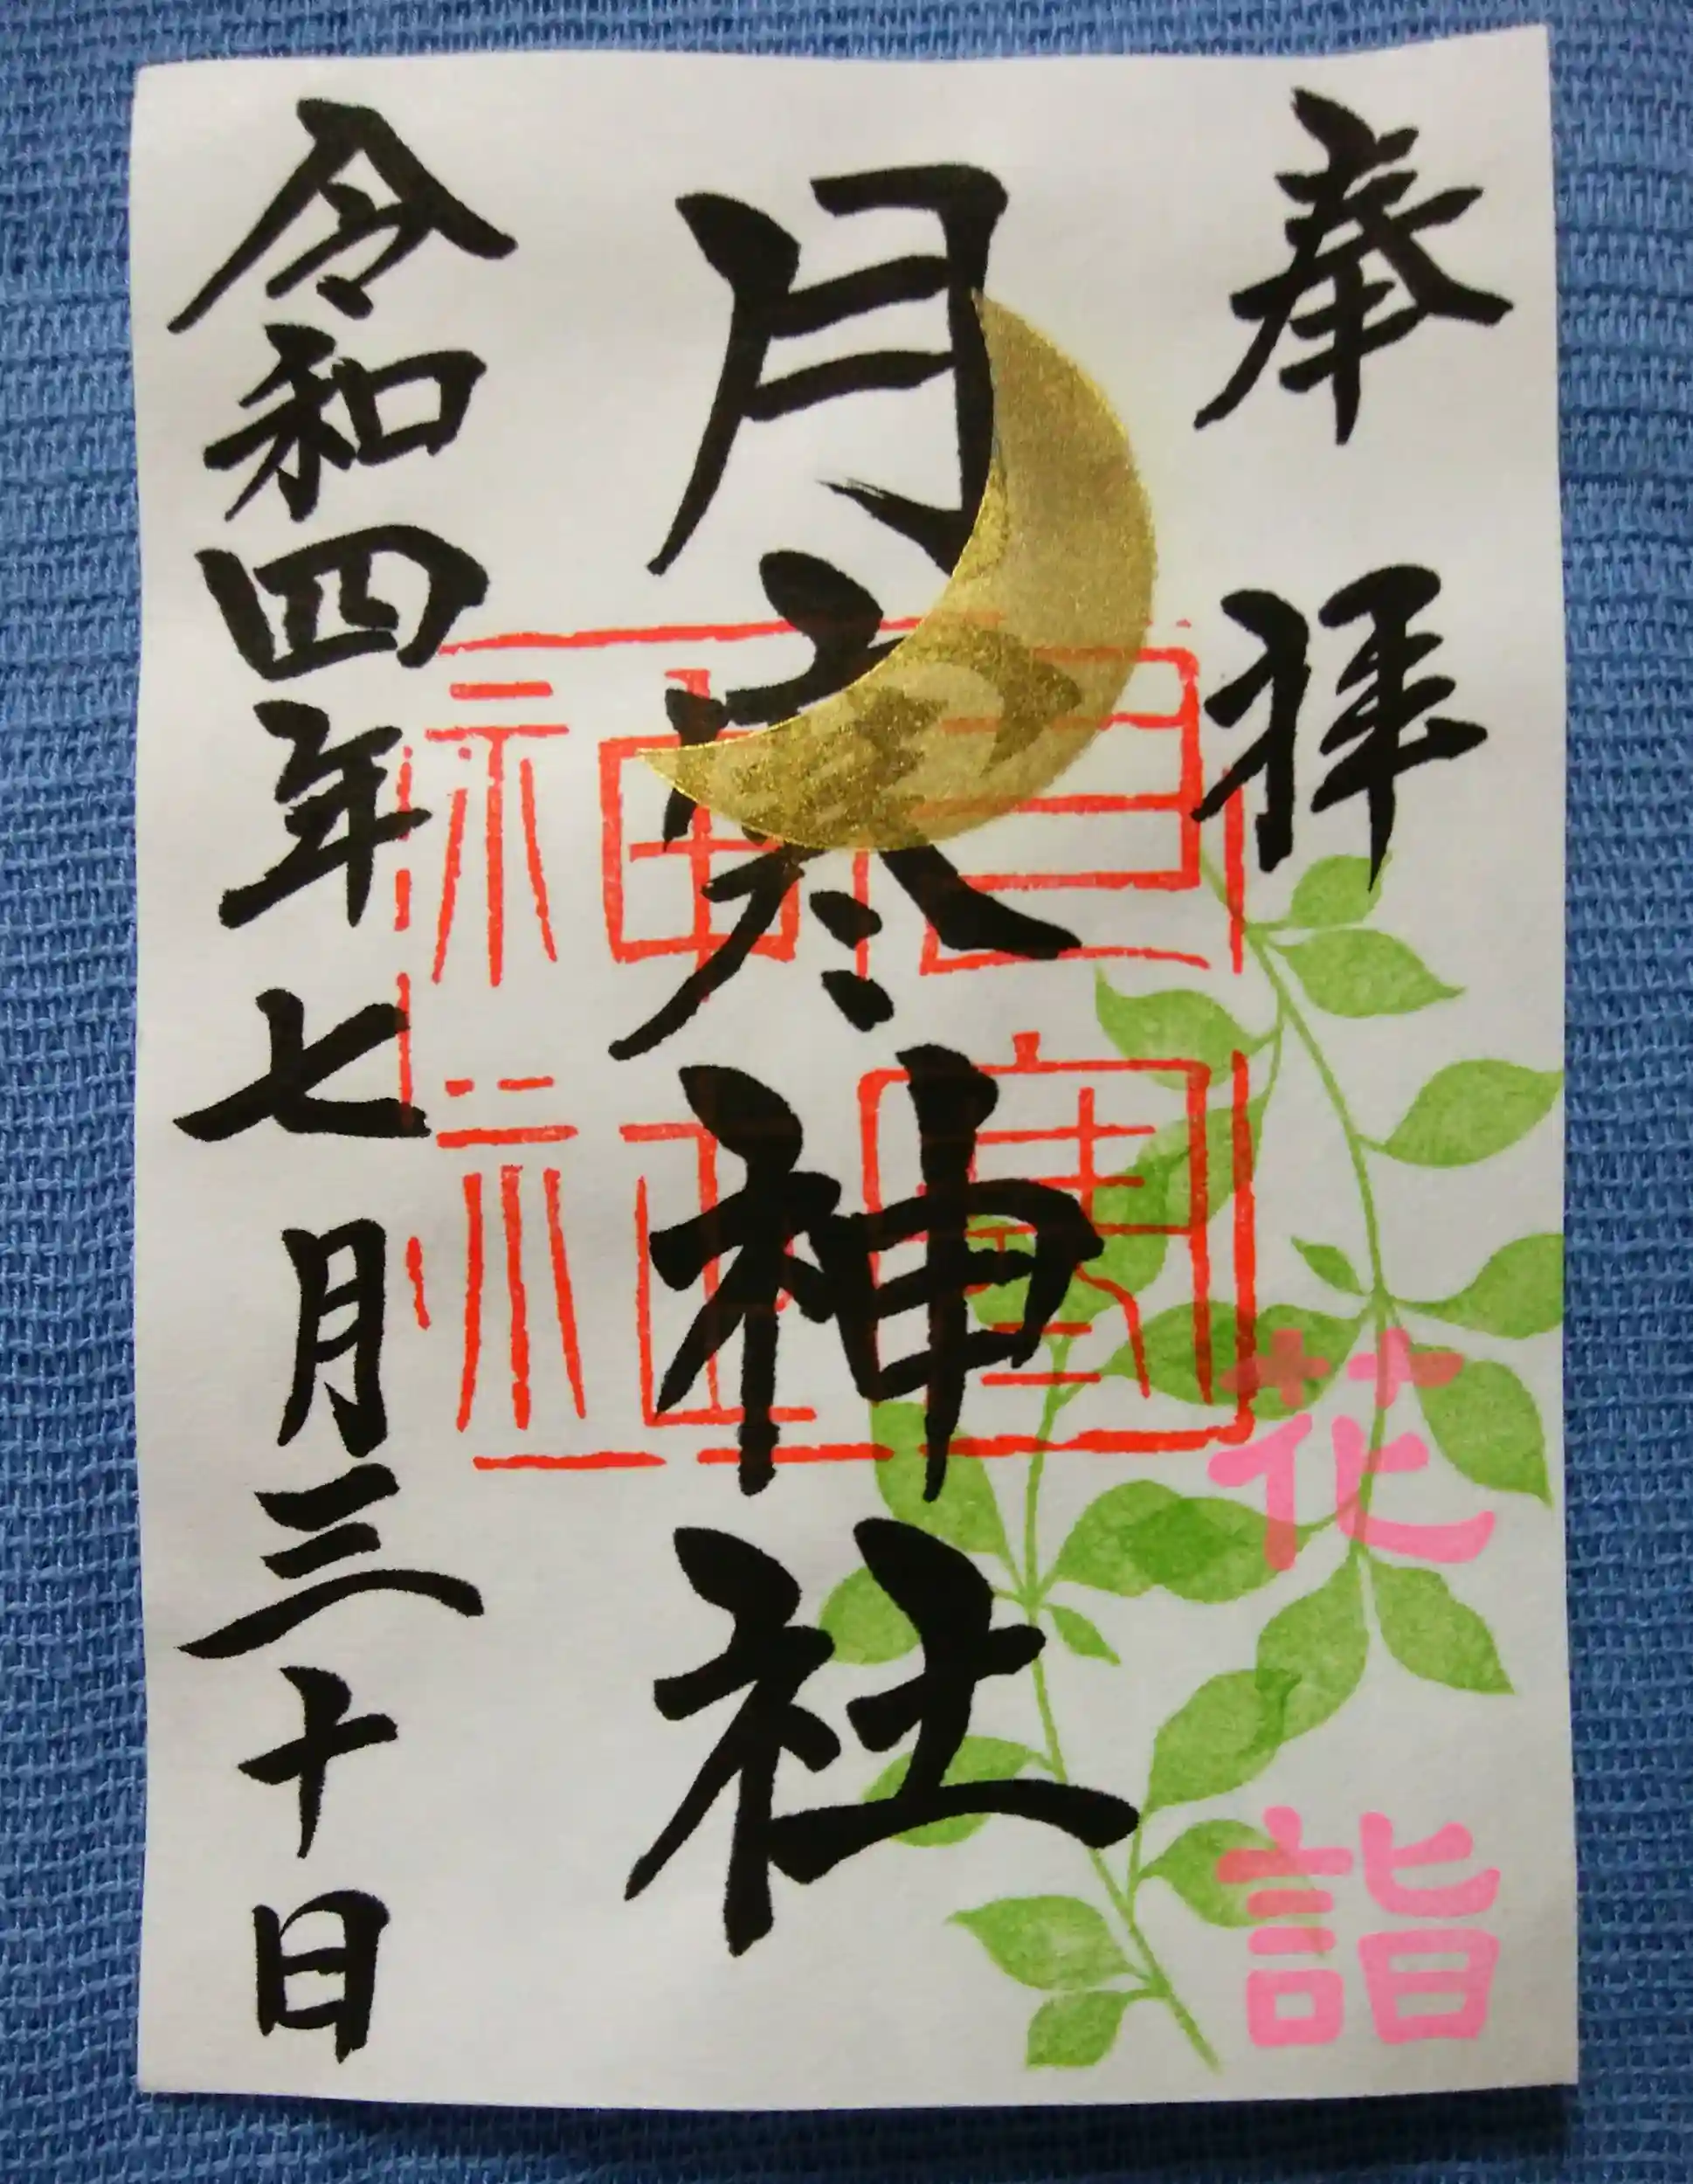 奉拝
花詣
月寒神社
月寒神社
令和四年七月三十日